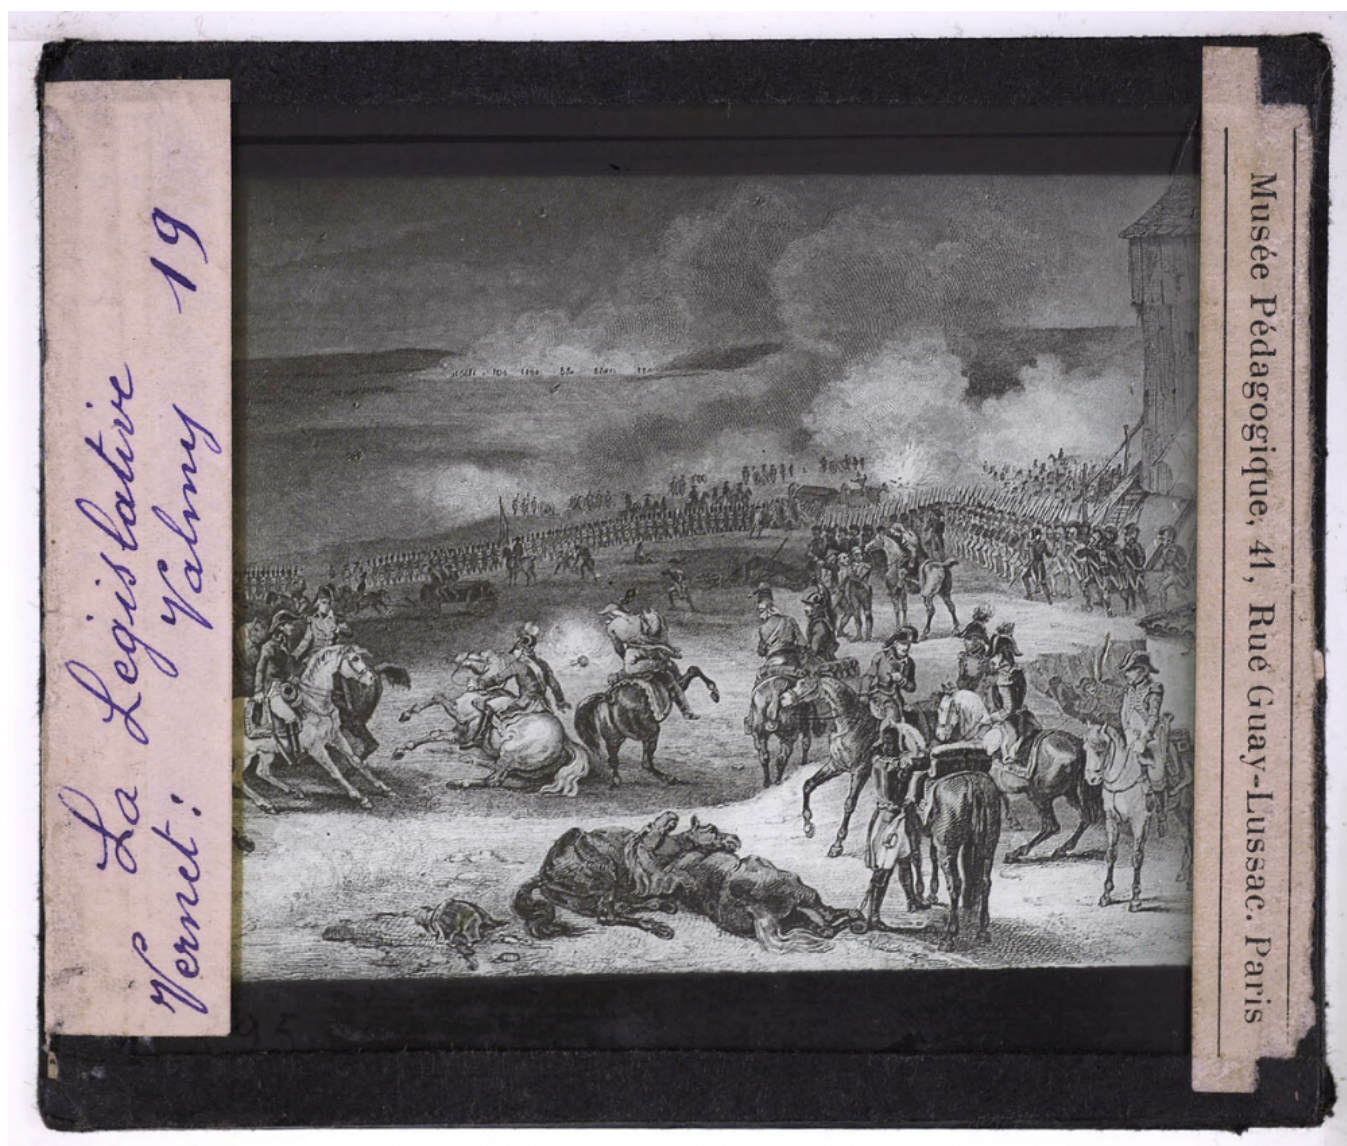 La Legislative
Vernet: Valmy 19
Musée Pédagogique, 41, Rue Guay-Lussac. Paris